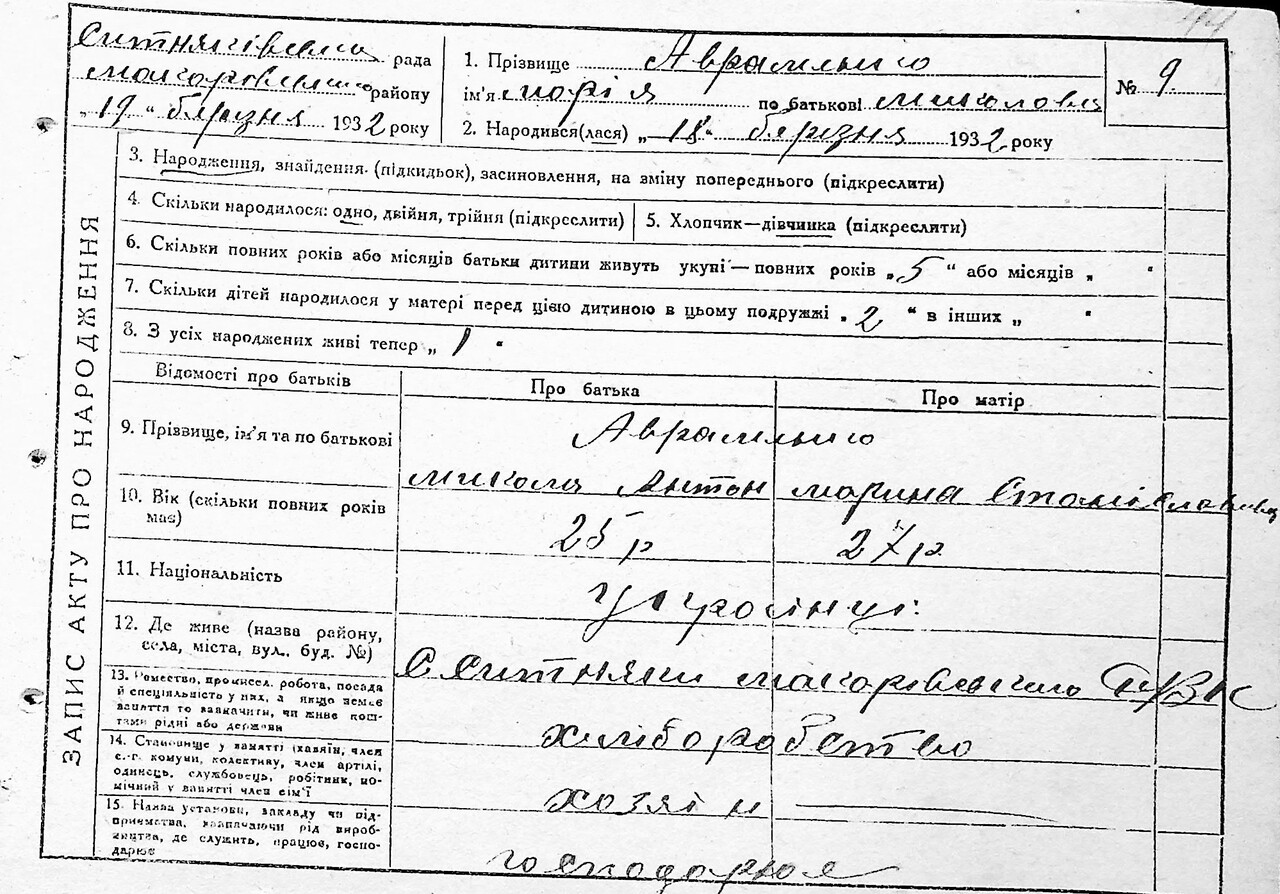 44
Ситняківська рада
Макарівського району
„19" березня 1932 року
1. Прізвище Авраменко
ім'я Марія по батькові Миколовна
2. Народився(лася) „18" березня 1932 року
№ 9.
ЗАПИС АКТУ ПРО НАРОДЖЕННЯ
3. Народження, знайдення (підкидьок), засиновлення, на зміну попереднього (підкреслити)
4. Скільки народилося: одно, двійня, трійня (підкреслити)
5. Хлопчик—дівчинка (підкреслити)
6. Скільки повних років або місяців батьки дитини живуть укупі—повних років „5" або місяців „ "
7. Скільки дітей народилося у матері перед цією дитиною в цьому подружжі „2" в інших „ "
8. З усіх народжених живі тепер „1"
Відомості про батьків
Про батька
Про матір
9. Прізвище, ім'я та по батькові
Авраменко
Микола Антон
Марина Станіславівна
10. Вік (скільки повних років має)
25 р
27 р.
11. Національність
Українці.
12. Де живе (назва району,
села, міста, вул., буд. №)
С Ситняки Макарівського РВК
13. Ремество, промисел, робота, посада
й спеціяльність у них, а якщо немає
заняття то зазначити, чи живе кош-
тами рідні або держави
хліборобство
14. Становище у занятті (хазяїн, член
с.-г. комуни, колективу, член артілі,
одинець, службовець, робітник, по-
мічний у занятті член сім'ї
хозяїн
15. Назва установи, закладу чи під-
приємства, зазначаючи рід вироб-
ництва, де служить, працює, госпо-
дарює
господарює